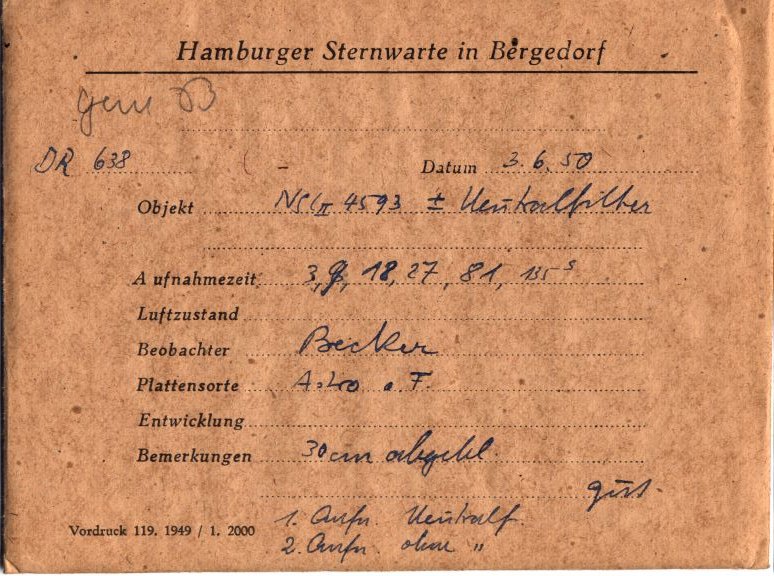 Hamburger Sternwarte in Bergedorf
gem B
DR 638 Datum 3.6.50
Objekt 4593 ± Neutralfilter
Aufnahmezeit 3, 9, 18, 27, 81, 135 s
Luftzustand
Beobachter Becker
Plattensorte Astro o. F.
Entwicklung
Bemerkungen 30 cm abgebl.
gut.
Vordruck 119. 1949 / 1. 2000
1. Aufn. Neutralf.
2. Aufn. ohne "